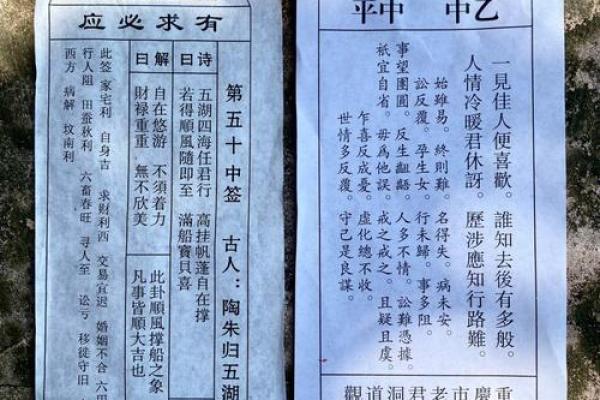 有求必应
第五十中签 古人：陶朱归五湖
诗曰
五湖四海任君行 高挂帆蓬自在撑
若得順風隨即至 滿船寶貝喜
解曰
自在悠游 不須着力 此卦順風撐船之象
財禄重重 無不欣美 凡事皆順大吉也
此签 家宅利 自身吉 求财利西 交易宜迟 婚姻不合 六甲
行人阻 田蚕秋利 六畜春旺 寻人至 讼亏 移徙守旧
西方 病解 坟南利
一見佳人便喜歡。誰知去後有多般。
人情冷暖君休訝。歷涉應知行路難。
始雖易。終則難。名得失。病未安。
訟反覆。孕生女。行未歸。事多阻。
事望團圓。反生齟齬。人多不情。訟難憑據。
祇宜自省。毋為他誤。戒之戒之。且疑且虞。
乍喜反成憂。虛化總不收。
世情多反覆。守己是良謀。
重慶市老君洞道觀